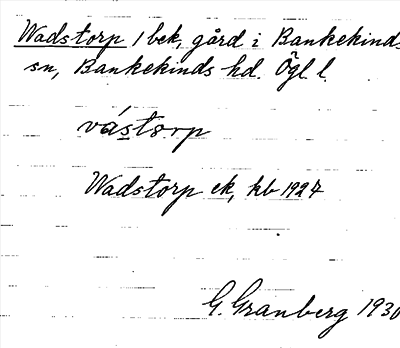 Wadstorp 1 bek, gård i Bankekinds
sn, Bankekinds hd. Ögl. l.
vástorp
Wadstorp ek, kb 1927
G. Granberg 1930